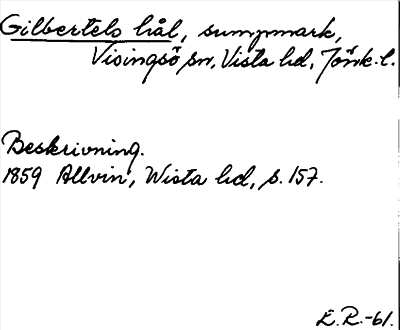 Gilbertels hål, sumpmark,
Visingsö sn, Vista hd, Jönk. l.
Beskrivning.
1859 Allvin, Wista hd, s. 157.
E.R.-61.